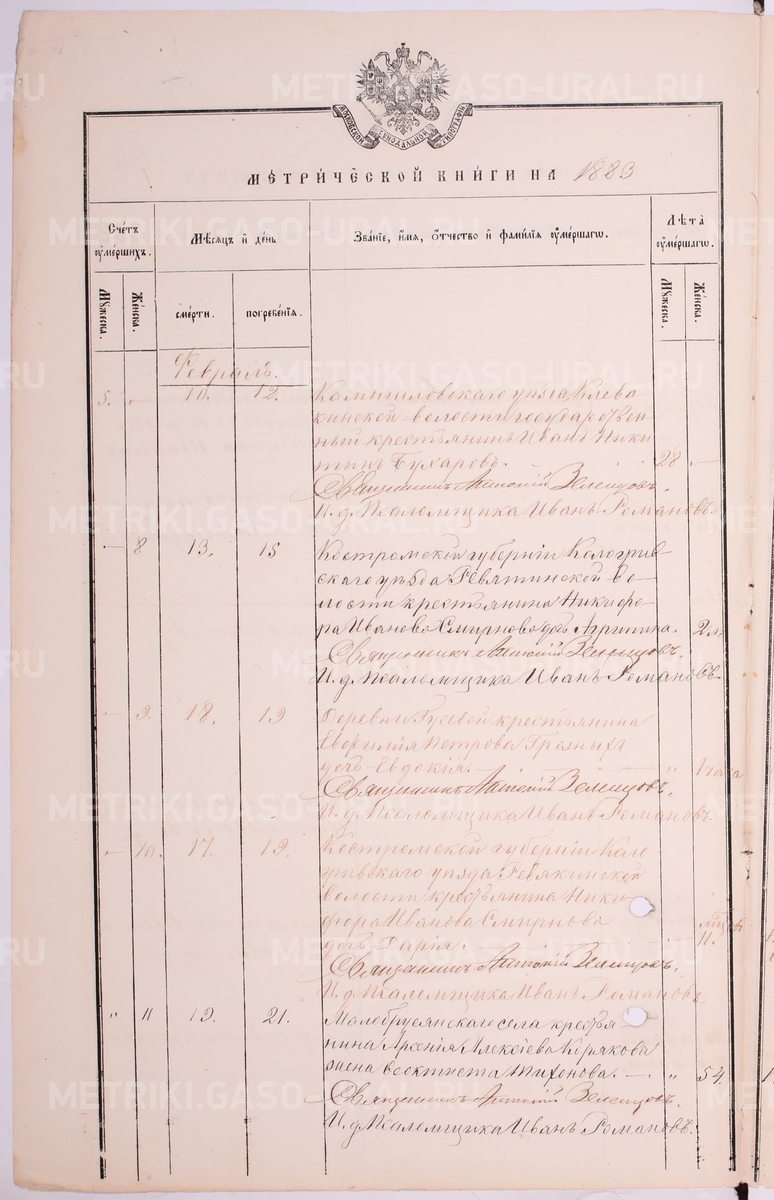 METRIKI.GASO-URAL.RU
МЕТРИЧЕСКОЙ КНИГИ НА 1883
Счетъ умершихъ.
Мѣсяцъ и день
Званіе, имя, отчество и фамилія умершагѡ.
Лѣта умершагѡ.
Мужеска.
Женска.
смерти.
погребенія.
Мужеска.
Женска.
Февраль.
5. 10. 12. Камышловскаго уѣзда Клева
кинской волости государствен
ный крестьянинъ Иванъ Ники
тинъ Бухаровъ. 28
Священникъ Антоній
И. д. Псаломщика Иванъ Романовъ.
8 13, 15 Костромской губерніи Кологрив
скаго уѣзда во
лости крестьянина Никифо
ра Иванова Смирнова дочь
Священникъ Антоній
И. д. Псаломщика Иванъ Романовъ.
9. 18, 19 Деревни Гусевой крестьянина
Евфимія Петрова Грозныхъ
дочь Евдокія.
Священникъ Антоній
И. д. Псаломщика Иванъ Романовъ.
10. 17. 19. Костромской губерніи Коло
гривскаго уѣзда
волости крестьянина Ники
фора Иванова Смирнова
дочь Дарія. 11.
Священникъ Антоній
И. д. Псаломщика Иванъ Романовъ.
" 11 19. 21. Малобрусянскаго села крестья
нина Арсенія Алексіева
жена Тихонова. " 54.
Священникъ Антоній
И. д. Псаломщика Иванъ Романовъ.